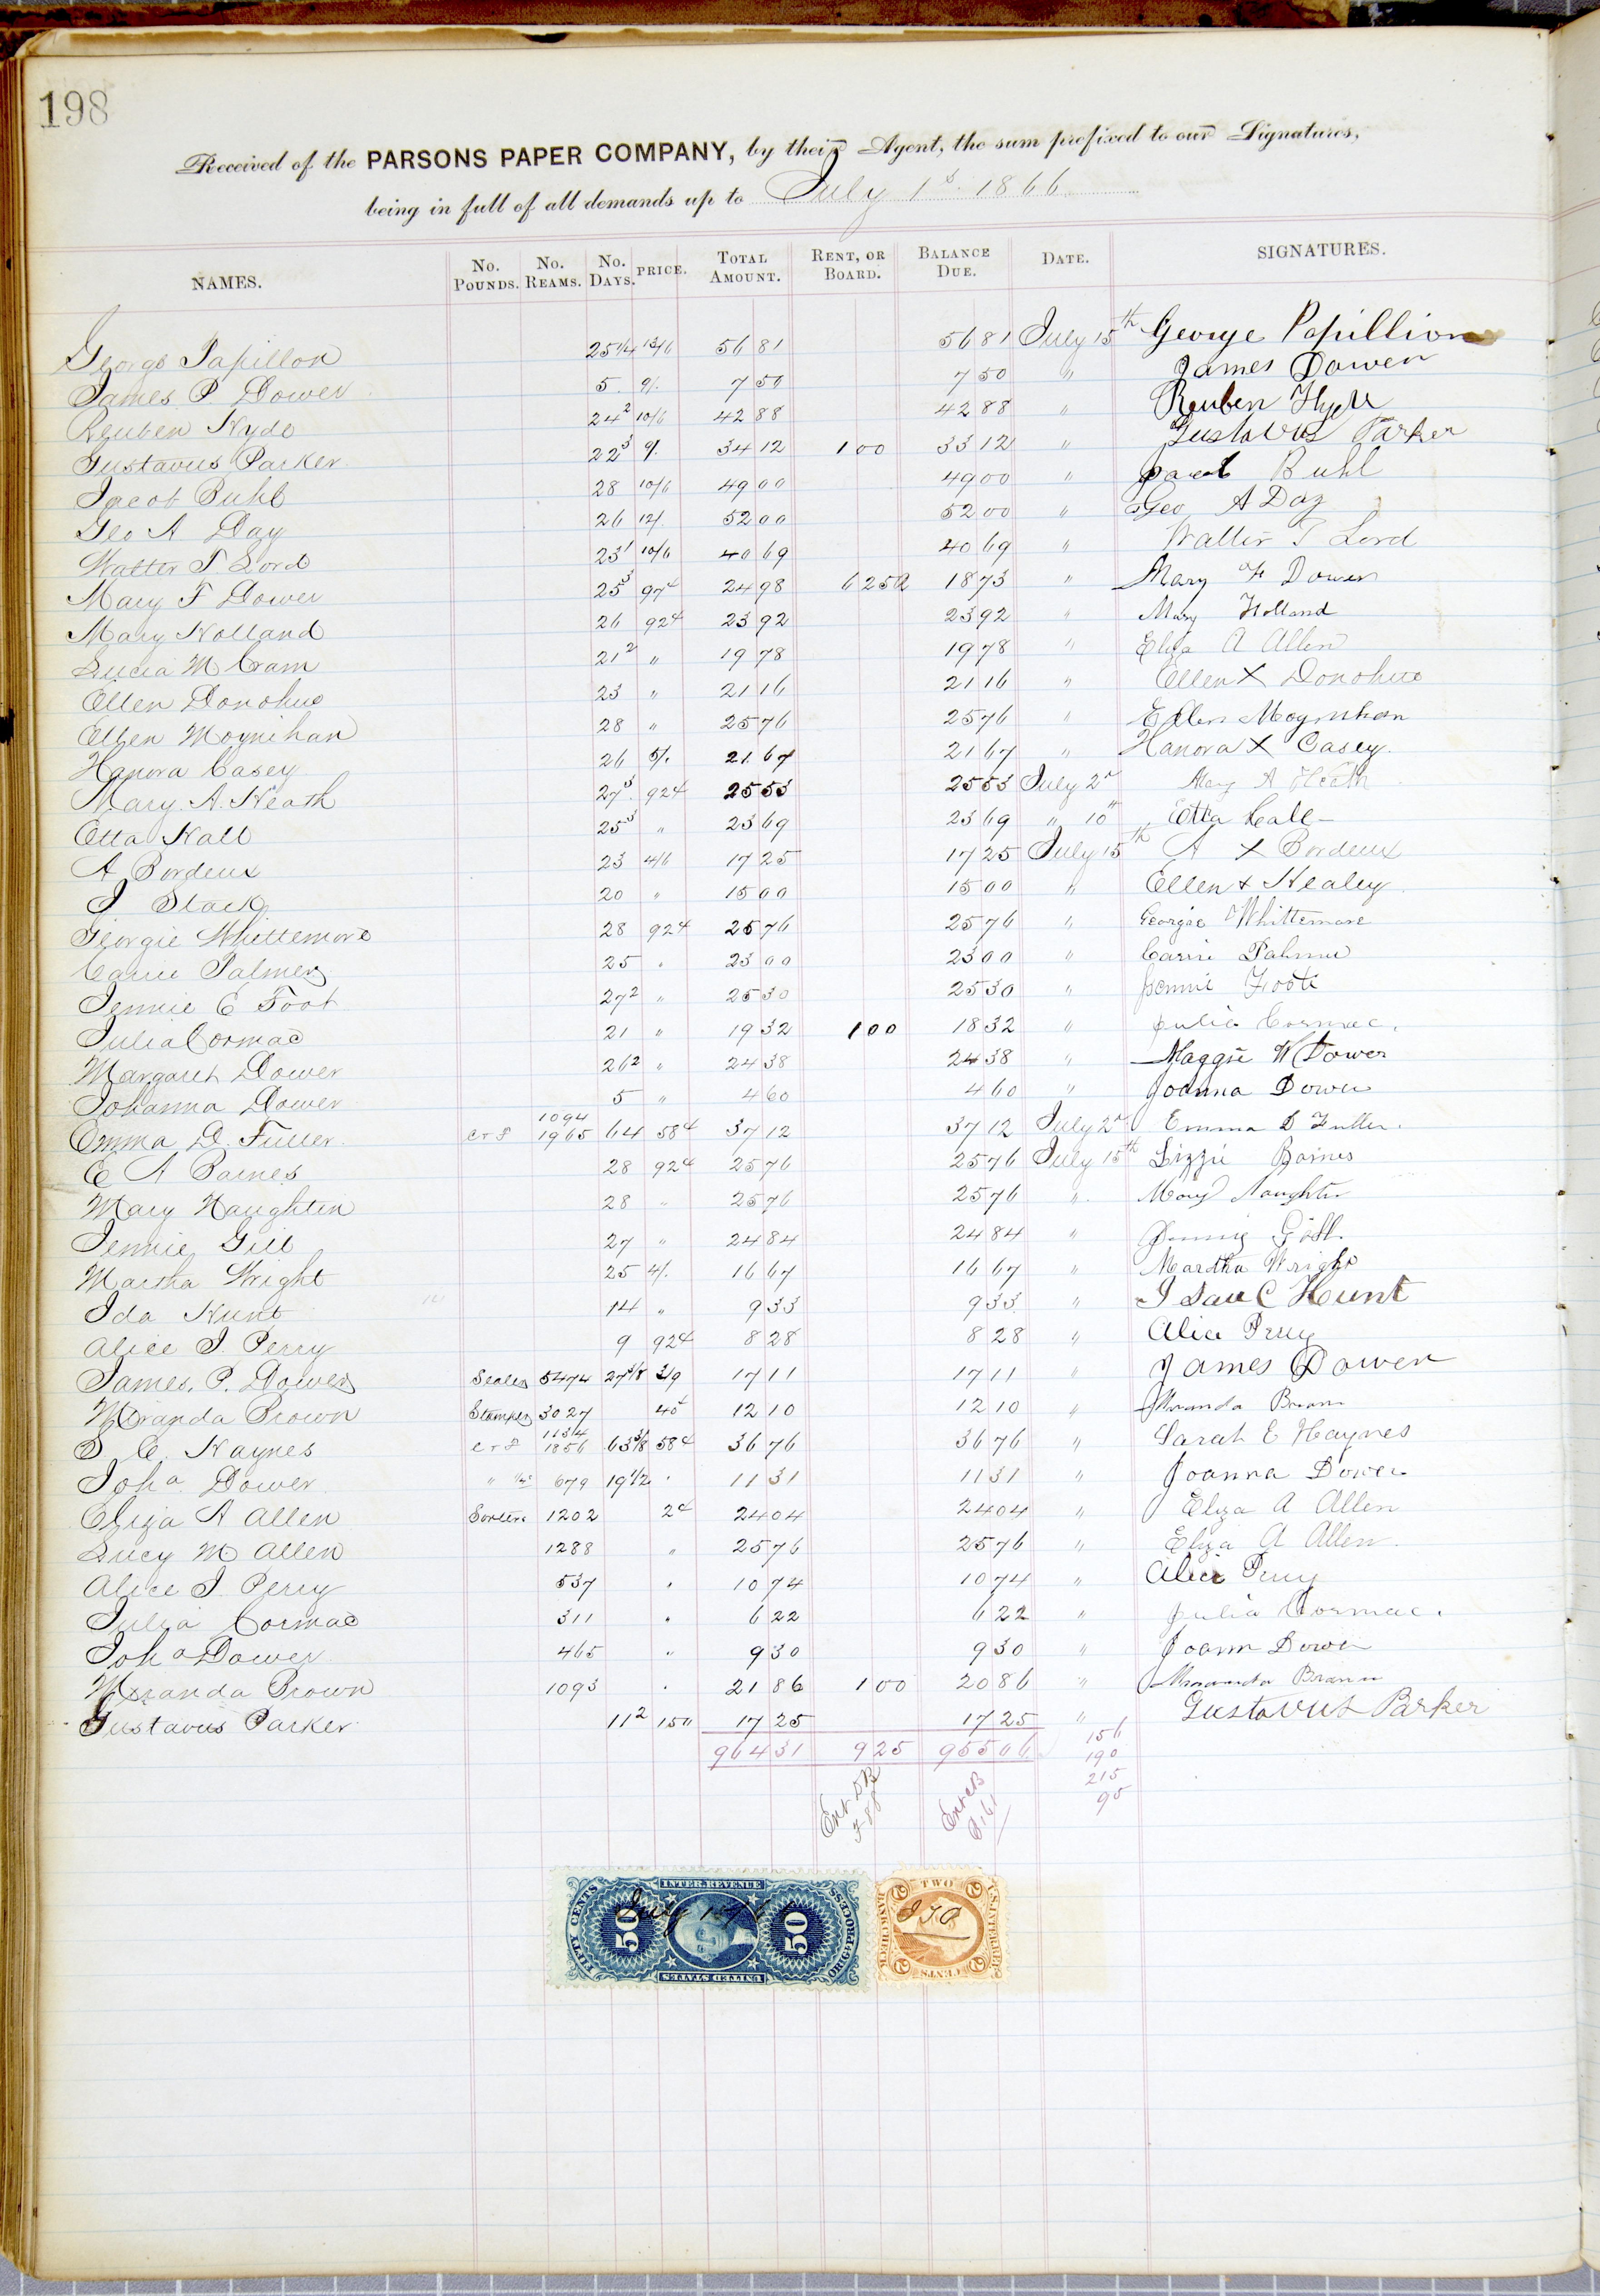 198
Received of the PARSONS PAPER COMPANY, by their Agent, the sum prefixed to our Signatures,
being in full of all demands up to July 1st 1866
NAMES. No. Pounds. No. Reams. No. Days. PRICE. Total Amount. Rent, or Board. Balance Due. Date. SIGNATURES.
George Papillon 25 1/4 13/6 56 81 56 81 July 15th George Papillion
James P. Dower 5 9/. 7 50 7 50 " James Dower
Reuben Hyde 24² 10/6 42 88 42 88 " Reuben Hyde
Gustavus Parker 22³ 9/. 34 12 1 00 33 12 " Gustavus Parker
Jacob Buhl 28 10/6 49 00 49 00 " Jacob Buhl
Geo A Day 26 12/. 52 00 52 00 " Geo A Day
Walter T Lord 23¹ 10/6 40 69 40 69 " Walter T Lord
Mary F Dower 25³ 97¢ 24 98 6 25 18 73 " Mary F Dower
Mary Holland 26 92¢ 23 92 23 92 " Mary Holland
Lucia M Cram 21² " 19 78 19 78 " Eliza A Allen
Ellen Donohue 23 " 21 16 21 16 " Ellen X Donohue
Ellen Moynihan 28 " 25 76 25 76 " Ellen Moynihan
Hanora Casey 26 5/. 21 67 21 67 " Hanora X Casey
Mary A. Heath 27³ 92¢ 25 53 25 53 July 2d Mary A Heath
Etta Hall 25³ " 23 69 23 69 " 10" Etta Hall
A Bordeux 23 4/6 17 25 17 25 July 15th A X Bordeux
J Stack 20 " 15 00 15 00 " Ellen X Healey
Georgie Whittemore 28 92¢ 25 76 25 76 " Georgie Whittemore
Carrie Palmer 25 " 23 00 23 00 " Carrie Palmer
Jennie E Foot 27² " 25 30 25 30 " Jennie Foote
Julia Cormac 21 " 19 32 1 00 18 32 " Julia Cormac.
Margaret Dower 26² " 24 38 24 38 " Maggie W Dower
Johanna Dower 5 " 4 60 4 60 " Joanna Dower
1094
Emma D. Fuller C & F 1965 64 58¢ 37 12 37 12 July 2d Emma D Fuller.
E A Barnes 28 92¢ 25 76 25 76 July 15th Lizzie Barnes
Mary Naughtin 28 " 25 76 25 76 " Mary Naughtin
Jennie Gill 27 " 24 84 24 84 " Jennie Gill.
Martha Wright 25 4/. 16 67 16 67 " Martha Wright
Ida Hunt 14 " 9 33 9 33 " Hunt
Alice J. Perry 9 92¢ 8 28 8 28 " Alice Perry
James. P. Dower Sealer 5474 27 3/8 3/9 17 11 17 11 " James Dower
Miranda Brown Stamper 3027 40¢ 12 10 12 10 " Miranda Brown
1134
S C. Haynes C & F 1856 63 3/8 58¢ 36 76 36 76 " Sarah E Haynes
Joha Dower " 679 19 1/2 " 11 31 11 31 " Joanna Dower
Eliza A Allen 1202 2¢ 24 04 24 04 " Eliza A Allen
Lucy M Allen 1288 " 25 76 25 76 " Eliza A Allen
Alice J. Perry 537 " 10 74 10 74 " Alice Perry
Julia Cormac 311 " 6 22 6 22 " Julia Cormac.
Joha Dower 465 " 9 30 9 30 " Joann Dower
Miranda Brown 1093 " 21 86 1 00 20 86 " Miranda Brown
Gustavus Parker 11² 150 17 25 17 25 " Gustavus Parker
964 31 9 25 955 06
156
190
215
95
Ent DB
F 88
Ent CB
P. 161
INTER. REVENUE
FIFTY CENTS
50
50
ORIG. PROCESS
UNITED STATES
July 15/66
TWO
U.S. INTER. REV.
CENTS
2
2
2
2